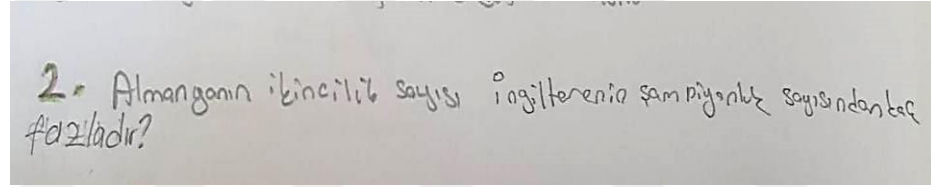 2. Almanyanın ikincilik sayısı ingilterenin şampiyonluk sayısından kaç
fazladır?